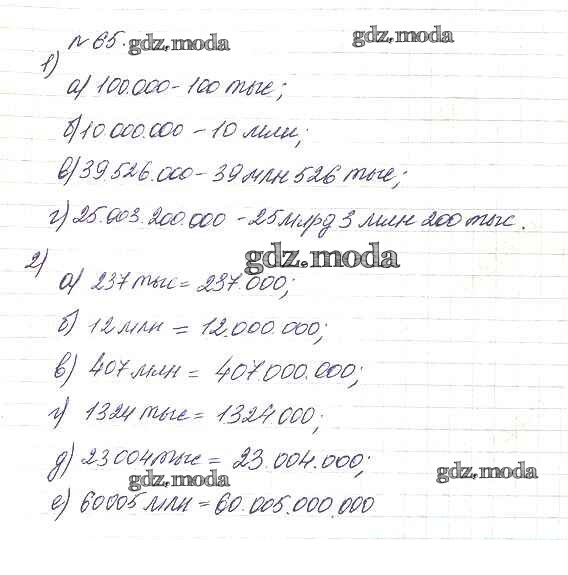 № 65. gdz.moda
gdz.moda
1)
а) 100.000 - 100 тыс;
б) 10.000.000 - 10 млн;
в) 39.526.000 - 39 млн 526 тыс;
г) 25.003.200.000 - 25 млрд 3 млн 200 тыс.
gdz.moda
2)
а) 237 тыс = 237.000;
б) 12 млн = 12.000.000;
в) 407 млн = 407000.000;
г) 1324 тыс = 1324000;
д) 23004 тыс = 23.004.000;
gdz.moda
gdz.moda
е) 60005 млн = 60.005.000.000